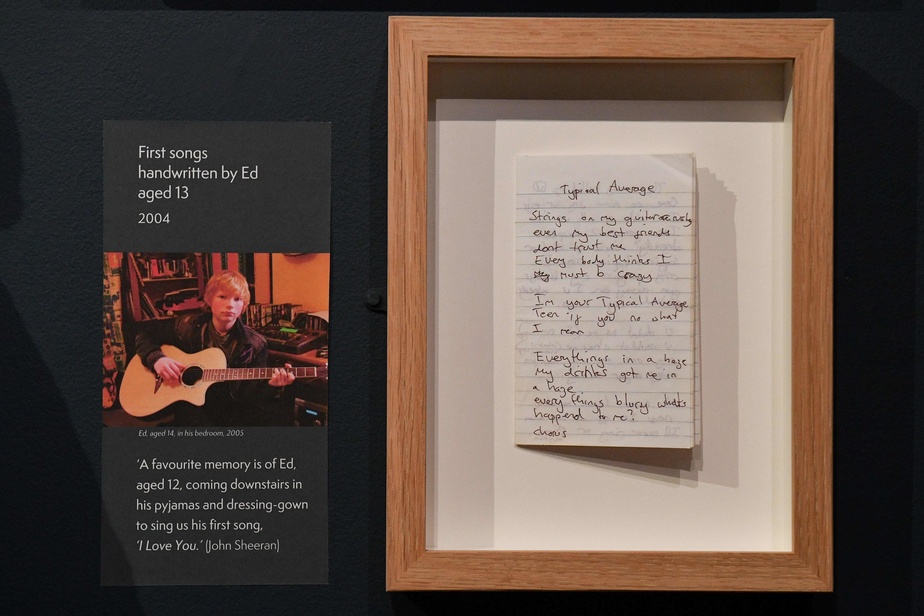 First songs
handwritten by Ed
aged 13
2004
Ed, aged 14, in his bedroom, 2005
‘A favourite memory is of Ed,
aged 12, coming downstairs in
his pyjamas and dressing-gown
to sing us his first song,
‘I Love You.’ (John Sheeran)
Typical Average
Strings on my guiter
even my best friends
dont trust me
Every body thinks I
must b crazy
Im your Typical Average
Teen if you no what
I mean
Everythings in a haze
My drinks got me in
a haze
every things blury whats
happend to me?
chorus